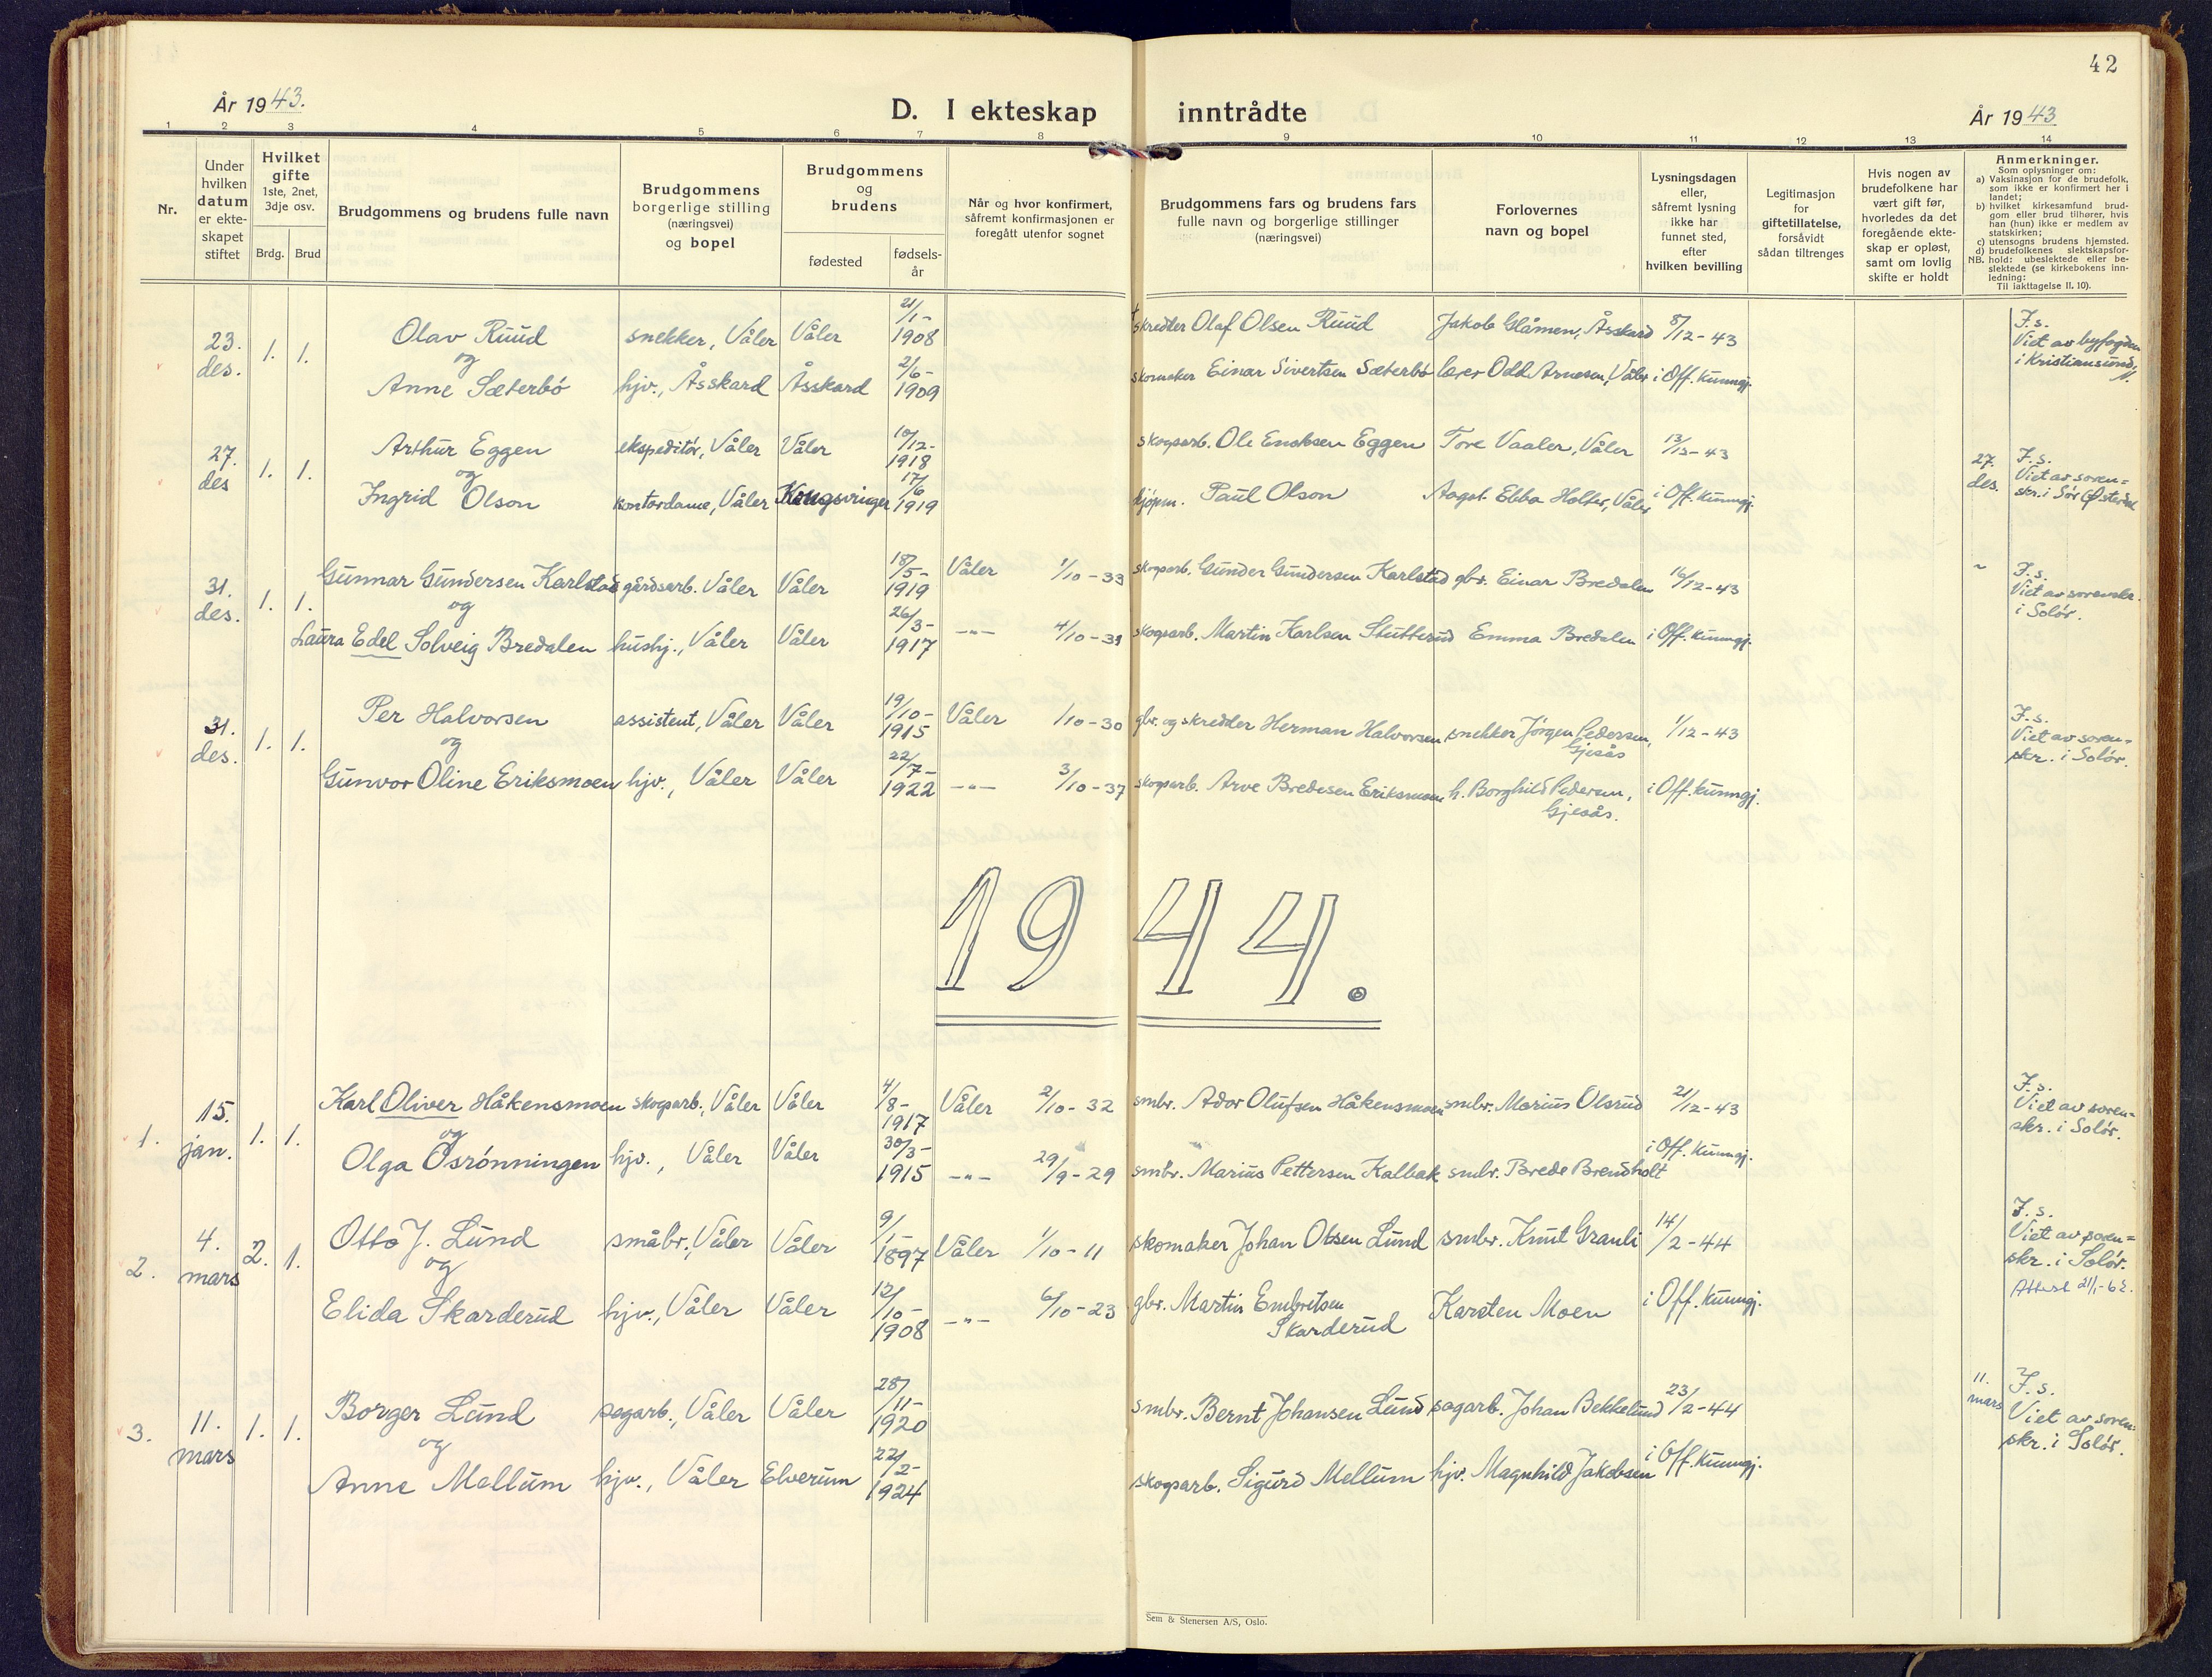 42
År 1943.
D. I ekteskap inntrådte
År 1943
1 2 3 4 5 6 7 8 9 10 11 12 13 14
Nr.
Under
hvilken
datum
er ekte-
skapet
stiftet
Hvilket
gifte
1ste, 2net,
3dje osv.
Brdg. Brud
Brudgommens og brudens fulle navn
Brudgommens
borgerlige stilling
(næringsvei)
og bopel
Brudgommens
og
brudens
fødested
fødsels-
år
Når og hvor konfirmert,
såfremt konfirmasjonen er
foregått utenfor sognet
Brudgommens fars og brudens fars
fulle navn og borgerlige stillinger
(næringsvei)
Forlovernes
navn og bopel
Lysningsdagen
eller,
såfremt lysning
ikke har
funnet sted,
efter
hvilken bevilling
Legitimasjon
for
giftetillatelse,
forsåvidt
sådan tiltrenges
Hvis nogen av
brudefolkene har
vært gift før,
hvorledes da det
foregående ekte-
skap er opløst,
samt om lovlig
skifte er holdt
Anmerkninger.
Som oplysninger om:
a) Vaksinasjon for de brudefolk,
som ikke er konfirmert her i
landet;
b) hvilket kirkesamfund brud-
gom eller brud tilhører, hvis
han (hun) ikke er medlem av
statskirken;
c) utensogns brudens hjemsted.
d) brudefolkenes slektskapsfor-
NB. hold: ubeslektede eller be-
slektede (se kirkebokens inn-
ledning:
Til iakttagelse II. 10).
23. des. 1. 1.
Olav Ruud snekker, Våler Våler 21/1- 1908 skredder Olaf Olsen Ruud Jakob Glåmen, Åsskard 8/12-43
og
Anne Sæterbö hjv., Åsskard Åsskard 2/6- 1909 skomaker Einar Sivertsen Sæterbö lærer Odd Arnesen, Våler i Off. kunngj.
F.s.
Viet av byfogden
i Kristiansund,
27. des 1. 1.
Arthur Eggen ekspeditör, Våler Våler 10/12- 1918 skogsarb. Ole Enoksen Eggen Tore Vaaler, Våler 13/12-43
og
Ingrid Olson kontordame, Våler Kongsvinger 17/6 1919 kjöpm. Paul Olson Aagot Ebba Holter, Våler i Off. kunngj.
27. des.
F.s.
Viet av soren=
skr. i Sör Österdal
31. des. 1. 1.
Gunnar Gundersen Karlstad gårdsarb. Våler Våler 18/5- 1919 Våler 1/10-33 skogsarb. Gunder Gundersen Karlstad gbr. Einar Bredalen 16/12-43
og
Laura Edel Solveig Bredalen hushj., Våler Våler 26/3- 1917 -"- 4/10-31 skogsarb. Martin Karlsen Stutterud Emma Bredalen i Off. kunngj.
F.s.
Viet av sorenskr.
i Solör.
31. des. 1. 1.
Per Halvorsen assistent, Våler Våler 19/10- 1915 Våler /10-30 gbr. og skredder Herman Halvorsen snekker Jörgen Pedersen, Gjesås 1/12-43
og
Gunvor Oline Eriksmoen hjv., Våler Våler 22/7- 1922 -"- 3/10-37 skogsarb. Arve Bredesen Eriksmoen h. Borghild Pedersen, Gjesås. i Off. kunngj.
F.s.
Viet av soren=
skr. i Solör.
1944.
1. 15. jan. 1. 1.
Karl Oliver Håkensmoen skogsarb., Våler Våler 4/8- 1917 Våler 2/10-32 smbr. Ador Olufsen Håkensmoen smbr. Marius Olsrud 21/12-43
og
Olga Osrönningen hjv., Våler Våler 30/3- 1915 -"- 29/9-29 smbr. Marius Pettersen Kalbak smbr. Brede Brendholt i Off. kunngj.
F.s.
Viet av soren=
skr. i Solör.
2. 4. mars 2. 1.
Otto J. Lund småbr., Våler Våler 9/1- 1897 Våler 1/10-11 skomaker Johan Olsen Lund smbr. Knut Granli 14/2-44
og
Elida Skarderud hjv., Våler Våler 12/10- 1908 -"- 6/10-23 gbr. Martin Embretsen Skarderud Karsten Moen i Off. kunngj.
F.s.
Viet av soren=
skr. i Solör.
Attest 21/1-62.
3. 11. mars 1. 1.
Borger Lund sagarb., Våler Våler 28/11- 1920 smbr. Bernt Johansen Lund sagarb. Johan Bekkelund 23/2-44
og
Anne Mellum hjv., Våler Elverum 22/2- 1924 skogsarb. Sigurd Mellum hjv. Magnhild Jakobsen i Off. kunngj.
11. mars
F.s.
Viet av soren-
skr. i Solör.
Sem & Stenersen A/S, Oslo.